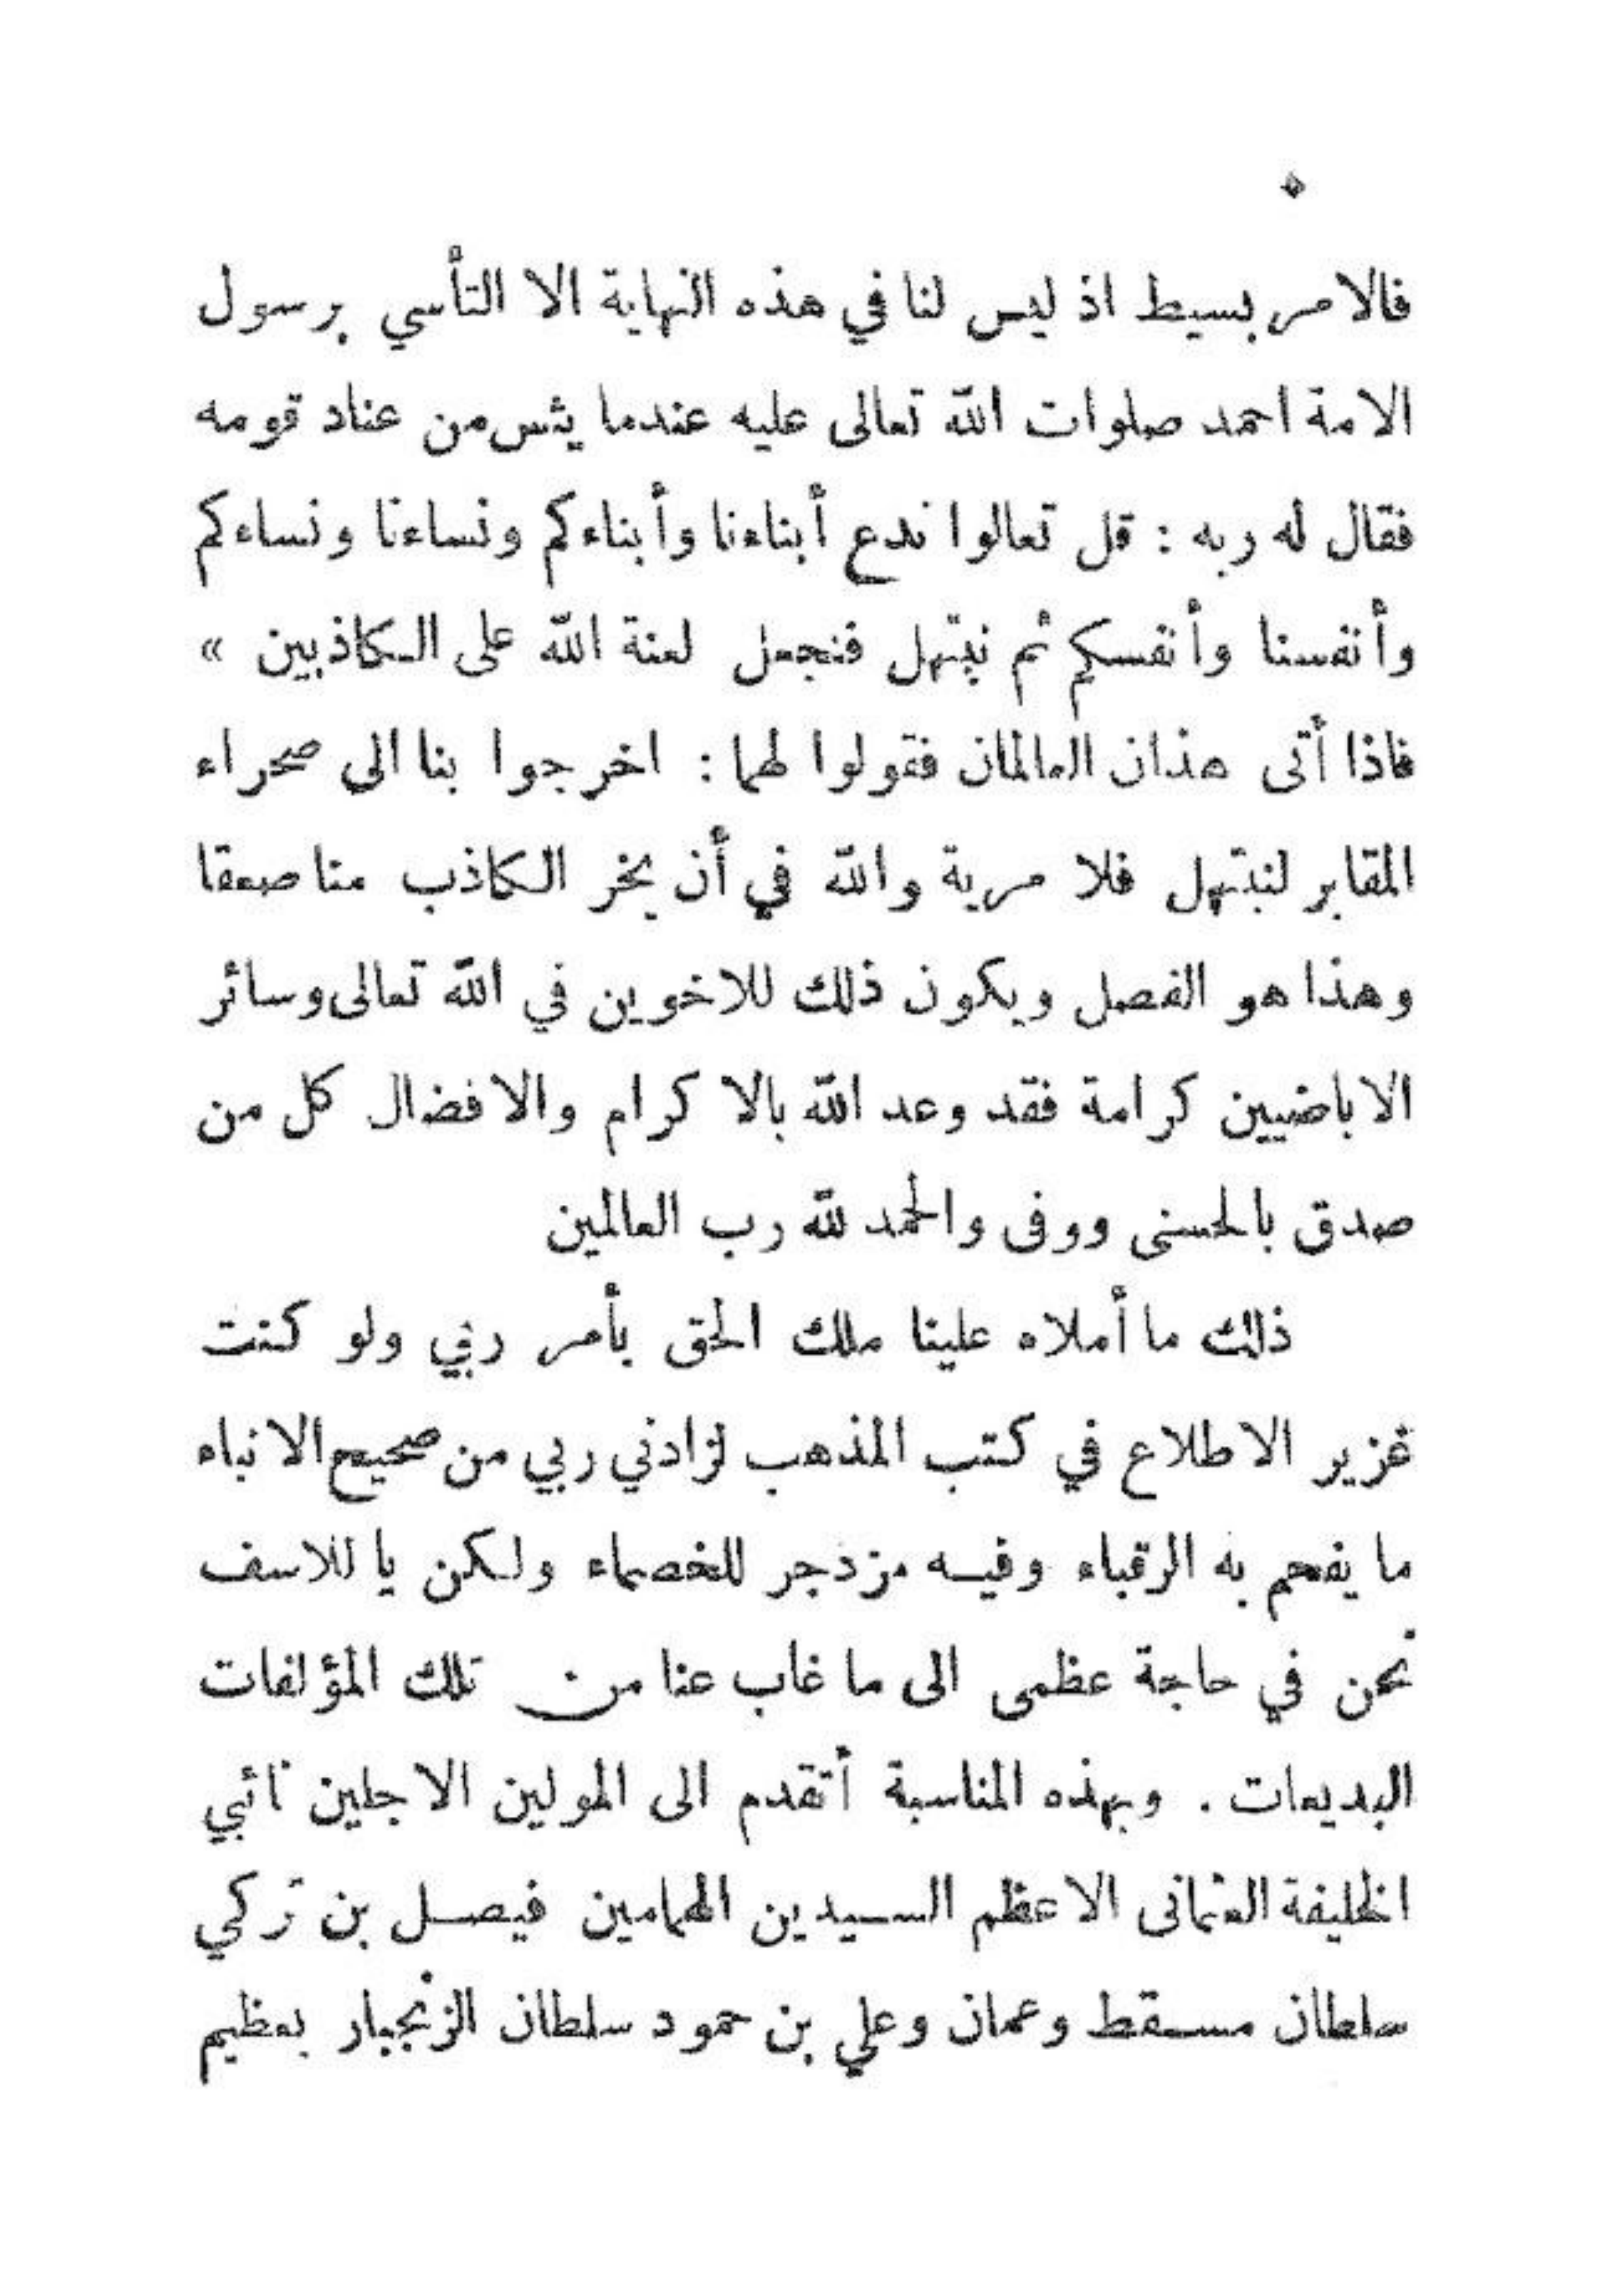 فالامر بسيط اذ ليس لنا في هذه النهاية الا التأسي برسول
الامة احمد صلوات الله تعالى عليه عندما يئس من عناد قومه
فقال له ربه : قل تعالوا ندع أبناءنا وأبناءكم ونساءنا ونساءكم
وأنفسنا وأنفسكم ثم نبتهل فنجعل لعنة الله على الكاذبين »
فاذا أتى هذان العالمان فقولوا لهما : اخرجوا بنا الى صحراء
المقابر لنبتهل فلا مرية والله في أن يخر الكاذب منا صعقا
وهذا هو الفصل ويكون ذلك للاخوين في الله تعالى وسائر
الاباضيين كرامة فقد وعد الله بالاكرام والافضال كل من
صدق بالحسنى ووفى والحمد لله رب العالمين
ذلك ما أملاه علينا ملك الحق بأمر ربي ولو كنت
غزير الاطلاع في كتب المذهب لزادني ربي من صحيح الانباء
ما يفحم به الرقباء وفيه مزدجر للخصماء ولكن يا للاسف
نحن في حاجة عظمى الى ما غاب عنا من تلك المؤلفات
البديعات . وبهذه المناسبة أتقدم الى المولين الاجلين نائبي
الخليفة العثمانى الاعظم السيدين الهمامين فيصل بن تركي
سلطان مسقط وعمان وعلي بن حمود سلطان الزنجبار بعظيم